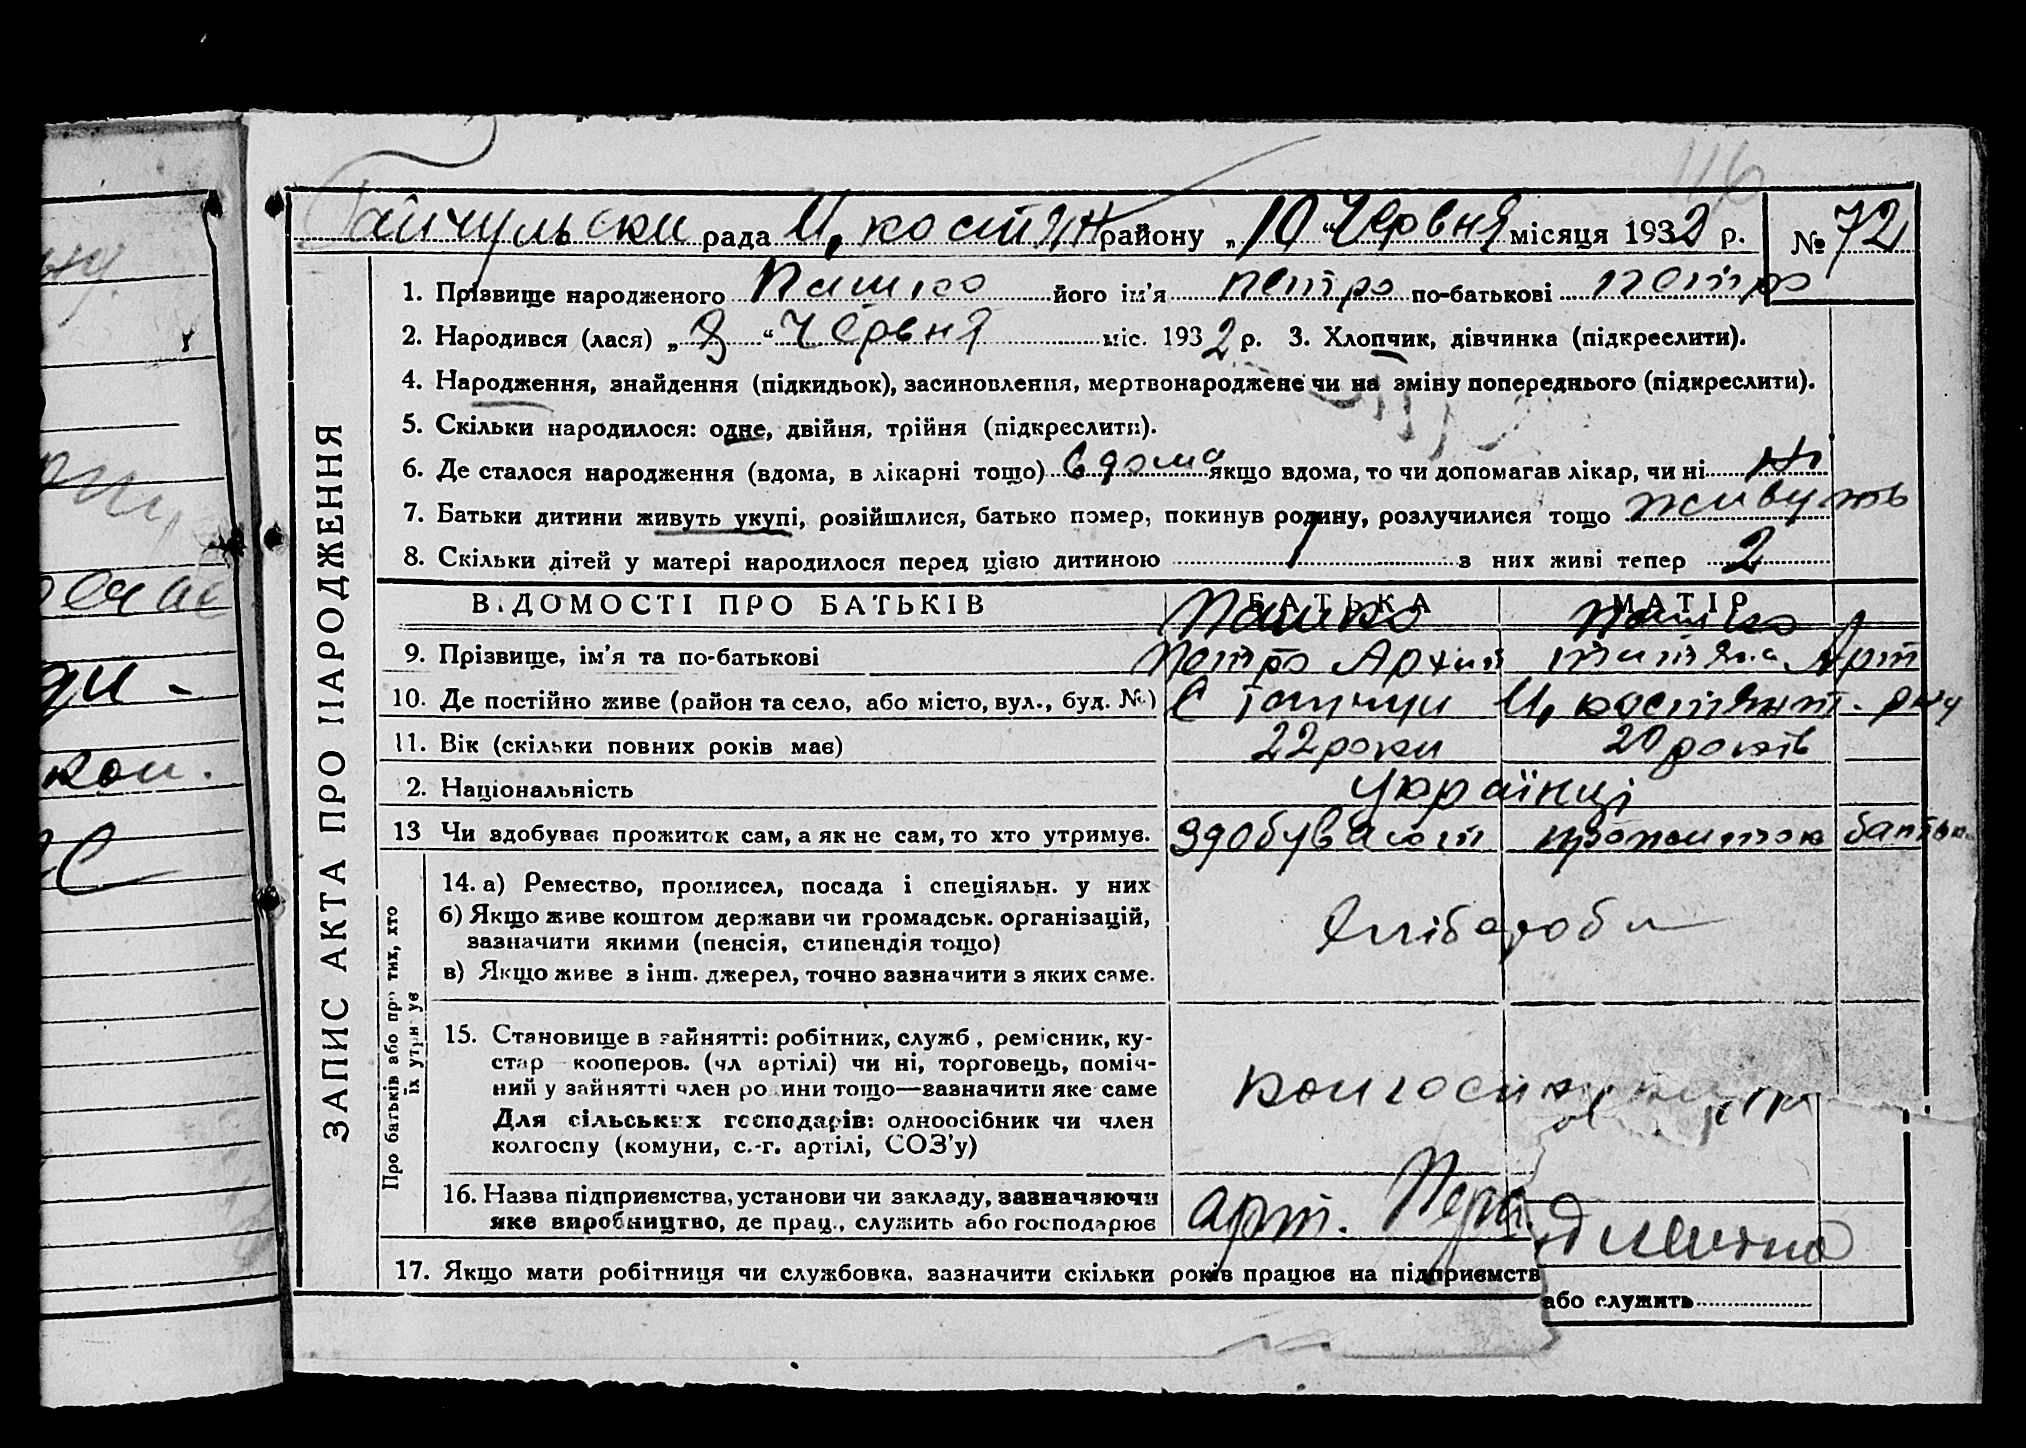 116
Гайчульски рада М, костян району „ 10 “ Червня місяця 1932 р. № 72
1. Прізвище народженого Пашко його ім'я петро по-батькові петро
2. Народився (лася) „ 8 “ Червня міс. 1932 р. 3. Хлопчик, дівчинка (підкреслити).
4. Народження, знайдення (підкидьок), засиновлення, мертвонароджене чи на зміну попереднього (підкреслити).
5. Скільки народилося: одне, двійня, трійня (підкреслити).
6. Де сталося народження (вдома, в лікарні тощо) вдома якщо вдома, то чи допомагав лікар, чи ні ні
7. Батьки дитини живуть укупі, розійшлися, батько помер, покинув родину, розлучилися тощо живуть
8. Скільки дітей у матері народилося перед цією дитиною 1 з них живі тепер 2
ЗАПИС АКТА ПРО НАРОДЖЕННЯ
ВІДОМОСТІ ПРО БАТЬКІВ БАТЬКА МАТІР
Пашко Пашко
9. Прізвище, ім'я та по-батькові Петро Архип титяна Арт
10. Де постійно живе (район та село, або місто, вул., буд. №) С Гайчул М, костянт. рну
11. Вік (скільки повних років має) 22 роки 20 років
2. Національність українці
13 Чи здобуває прожиток сам, а як не сам, то хто утримує. Здобувають прожиток батьки
Про батьків або про тих, хто їх утримує
14. а) Ремество, промисел, посада і спеціяльн. у них
б) Якщо живе коштом держави чи громадськ. організацій,
зазначити якими (пенсія, стипендія тощо) Хлібороби
в) Якщо живе з інш. джерел, точно зазначити з яких саме.
15. Становище в зайнятті: робітник, служб, ремісник, ку-
стар кооперов. (чл артілі) чи ні, торговець, поміч-
ний у зайнятті член родини тощо—зазначити яке саме
Для сільських господарів: одноосібник чи член
колгоспу (комуни, с.-г. артілі, СОЗ'у)
16. Назва підприємства, установи чи закладу, зазначаючи арт.
яке виробництво, де прац., служить або господарює
17. Якщо мати робітниця чи службовка, зазначити скільки років працює на підприємств
або служить